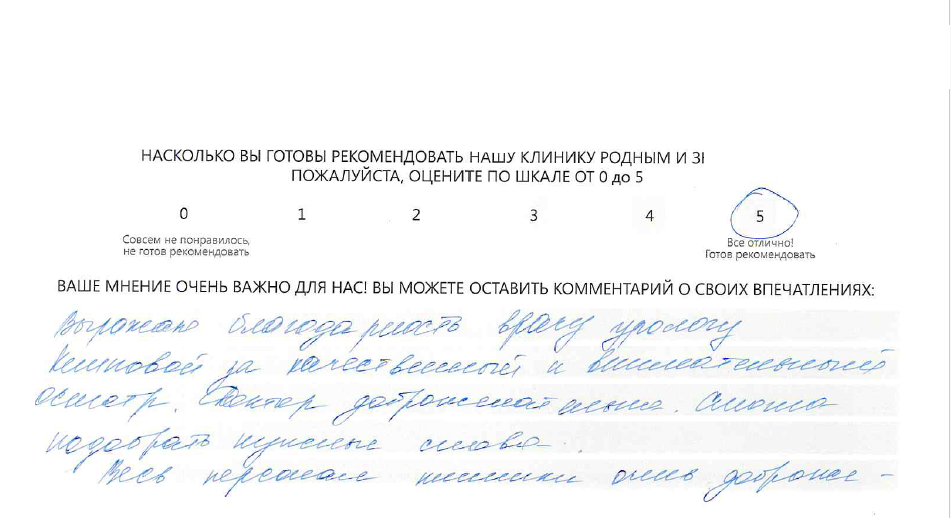 НАСКОЛЬКО ВЫ ГОТОВЫ РЕКОМЕНДОВАТЬ НАШУ КЛИНИКУ РОДНЫМ И
ПОЖАЛУЙСТА, ОЦЕНИТЕ ПО ШКАЛЕ ОТ 0 до 5
0 1 2 3 4 5
Совсем не понравилось, Все отлично!
не готов рекомендовать Готов рекомендовать
ВАШЕ МНЕНИЕ ОЧЕНЬ ВАЖНО ДЛЯ НАС! ВЫ МОЖЕТЕ ОСТАВИТЬ КОММЕНТАРИЙ О СВОИХ ВПЕЧАТЛЕНИЯХ:
Выражаю благодарность врачу урологу
за качественный и внимательный
осмотр. Доктор доброжелательна. Смогла
подобрать нужные слова.
Весь персонал клиники очень доброже-